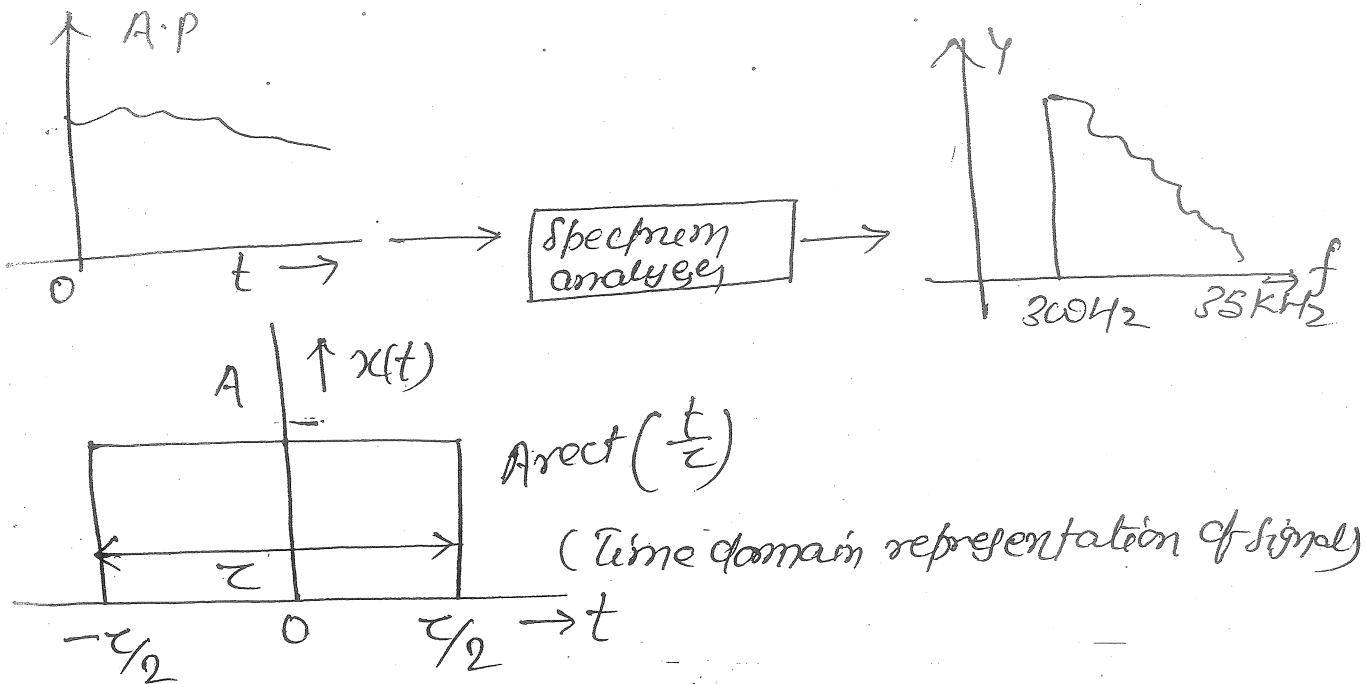 A.P
0
t →
Spectrum
analyser
Y
300Hz
35KHz
f
A
↑ x(t)
A rect(t/τ)
(Time domain representation of signal)
τ
-τ/2
0
τ/2
→ t